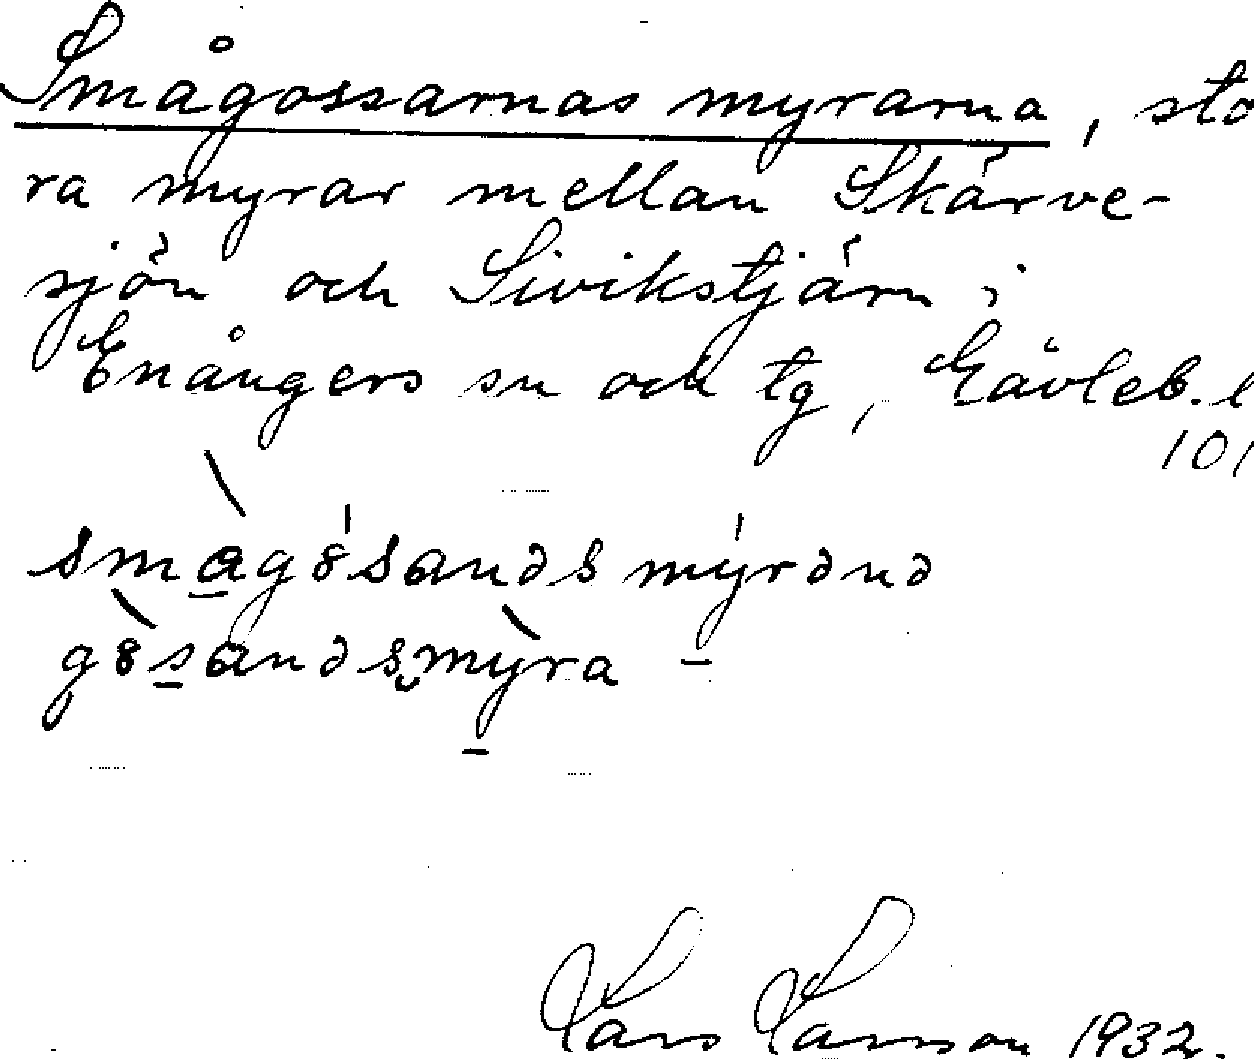 Smågossarnas myrarna, sto
ra myrar mellan Skärve-
sjön och Sivikstjärn i
Enångers sn och tg, Gävleb. l
101
Lars Larsson 1932.